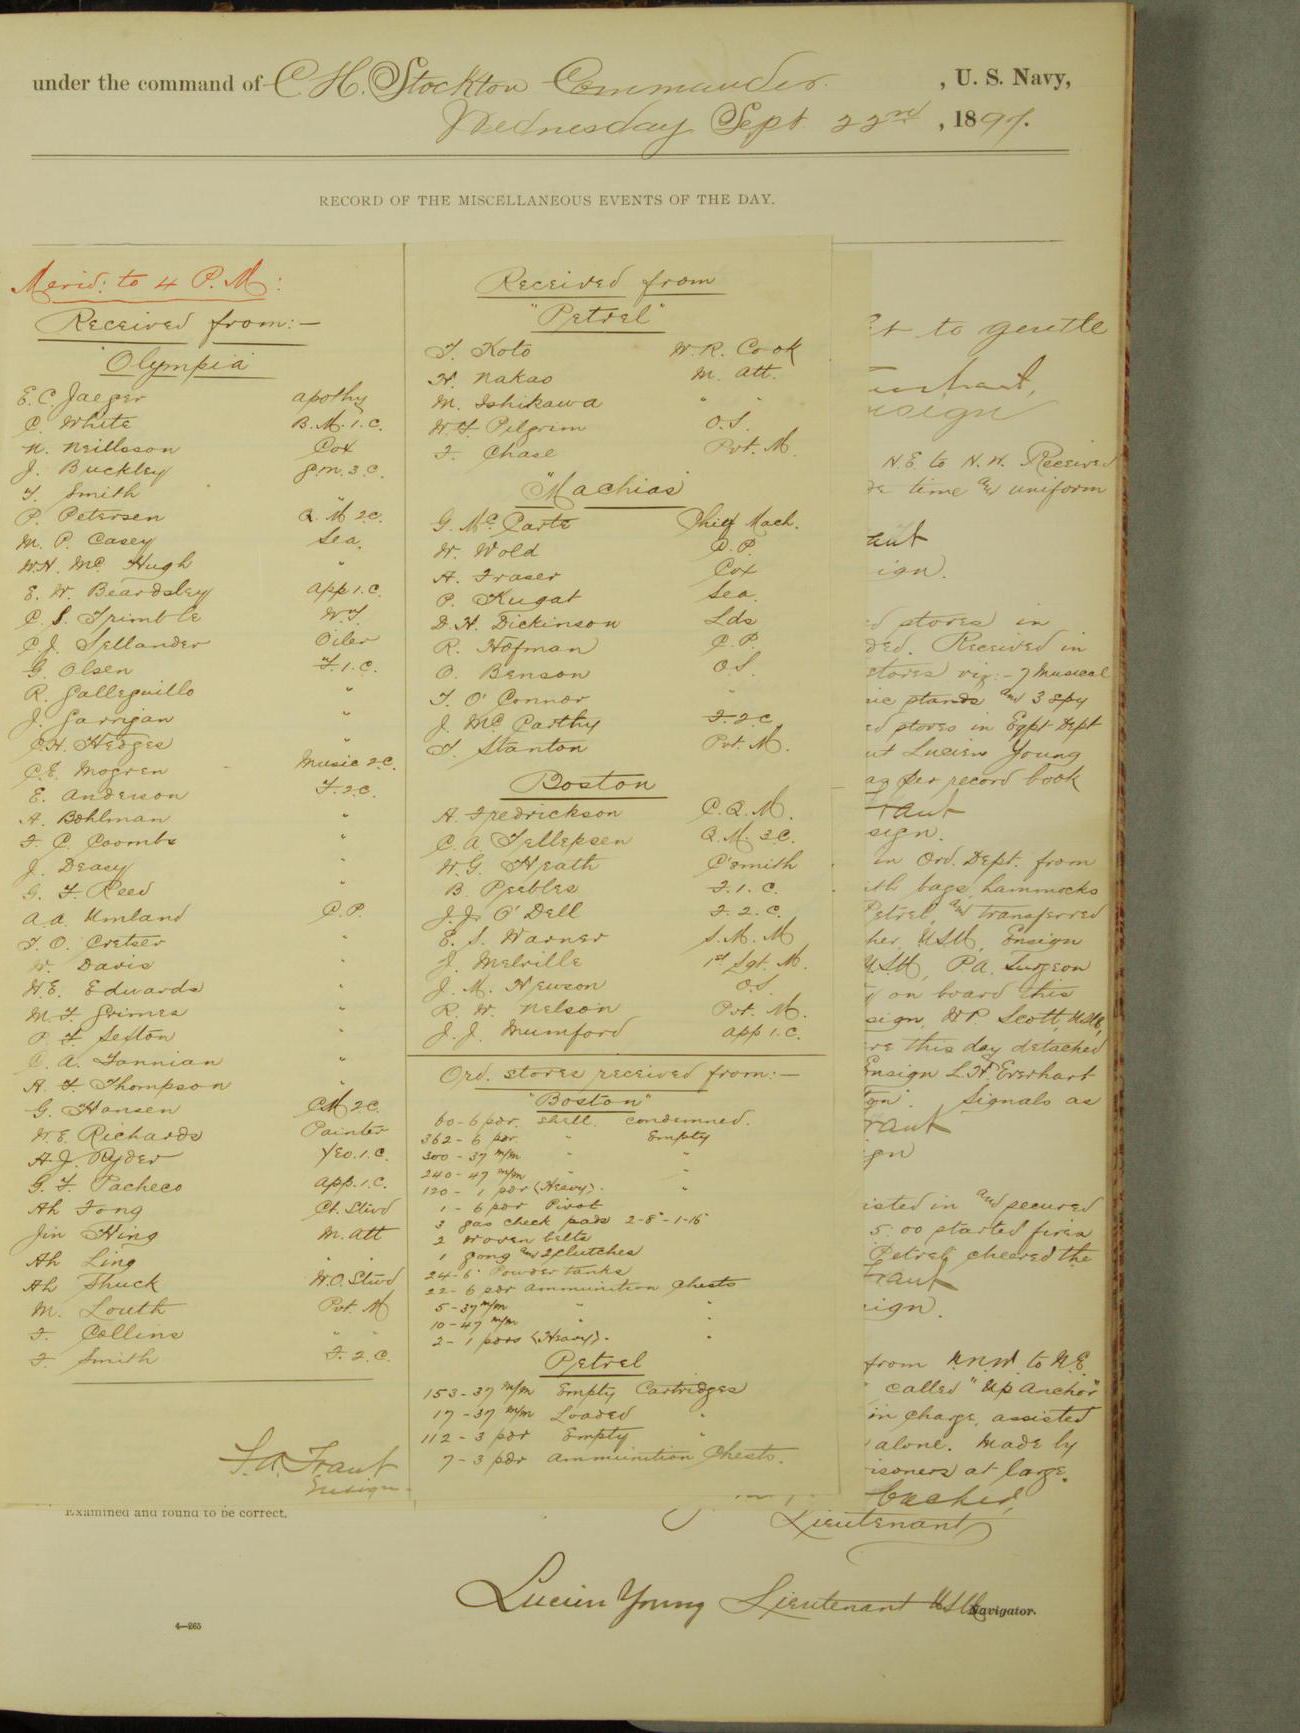 under the command of C. H. Stockton Commander. , U. S. Navy,
Wednesday Sept 22nd , 1897.
RECORD OF THE MISCELLANEOUS EVENTS OF THE DAY.
Merid: to 4 P. M:
Received from:—
"Olympia"
E. C. Jaeger apothy
C. White B. M. 1. C.
N. Neillsson Cox
J. Buckley g.m. 3. C.
T. Smith "
P. Petersen Q. M 2 C.
M. P. Casey Sea.
W. H. Mc Hugh "
E. W. Beardsley app 1. C.
C. S. Trimble W. T.
C. J. Sellander Oiler
G. Olsen F. 1. C.
R. Galleguillo "
J. Garrigan "
C. H. Hedges "
C. E. Mogren Music 2 C.
E. Anderson F. 2 C.
A. Bohlman "
F. C. Coombs "
J. Deasy "
G. F. Reed "
A. A. Umland C. P.
T. O. Cretser "
W. Davis "
H. E. Edwards "
M. F. Grimes "
P. F. Sexton "
C. A. Tannian "
A. F. Thompson "
G. Hansen C M 2 C.
W. E. Richards Painter
A. J. Ryder Yeo. 1. C.
G. F. Pacheco app. 1. C.
Ah Fong Ct. Stwd
Jin Hing M. Att
Ah Ling " "
Ah Shuck W. O. Stwd
M. Louth Pvt. M
F. Collins " "
F. Smith F. 2. C.
Ensign
Received from
"Petrel"
T. Koto W. R. Cook
H. Nakao M. Att.
M. Ishikawa " "
W. F. Pilgrim O. S.
F. Chase Pvt. M.
"Machias"
G. Mc Carte Chief Mach.
W. Wold C. P.
A. Fraser Cox
P. Kugat Sea.
D. H. Dickinson Lds
R. Hofman C. P.
O. Benson O. S.
T. O'Connor "
J. Mc Carthy F. 2 C.
T. Stanton Pvt. M.
Boston
A. Fredrickson C. Q. M.
C. A. Tellepsen Q. M. 3 C.
W. G. Heath C'smith
B. Peebles F. 1. C.
J. J. O'Dell F. 2. C.
E. S. Warner S. M. M
J. Melville 1st Sgt. M.
J. M. Hewson O. S.
R. W. Nelson Pvt. M.
J. J. Mumford app 1. C.
Ord. stores received from:—
"Boston"
60 - 6 pdr. shell. condemned.
362 - 6 pdr. " Empty
300 - 37 m/m " "
240 - 47 m/m " "
120 - 1 pdr (Heavy). "
1 - 6 pdr Pivot
3 gas check pads 2-8" - 1-15
2 woven belts
1 gong and 2 clutches
24 - 6" Powder tanks
22 - 6 pdr ammunition Chests
5 - 37 m/m " "
10 - 47 m/m " "
2 - 1 pdrs (Heavy). "
Petrel
153 - 37 m/m Empty Cartridges
17 - 37 m/m Loaded "
112 - 3 pdr Empty "
7 - 3 pdr ammunition Chests.
to gentle
N. E. to N. W. Received
time and uniform
stores in
Received in
stores viz: - 7 musical
stands and 3 spy
stores in Eqpt Dept
Lucien Young
per record book
in Ord. Dept. from
bags, hammocks
Petrel, and transferred
U S N, Ensign
U S N, P. A. Surgeon
on board this
W. P. Scott, U S N,
this day detached
Ensign L. H. Everhart
Signals as
in and secured
5:00 started fires
Petrel, cheered the
from N. N. W to N. E.
called "Up anchor"
in charge, assisted
alone. Made by
at large.
Lieutenant
Examined and found to be correct.
Lucien Young Lieutenant U S N
Navigator.
4—265